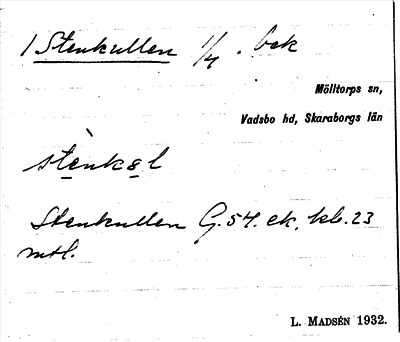 1 Stenkullen 1/4. bek
Mölltorps sn,
Vadsbo hd, Skaraborgs län
stènkəl
Stenkullen G.54. ek. kb. 23
mtl.
L. MADSÉN 1932.